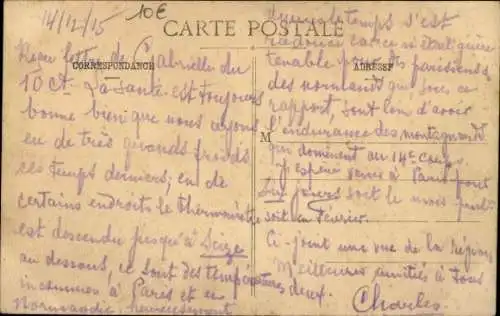 14/12/15
10€
CARTE POSTALE
CORRESPONDANCE
ADRESSE
M
Reçu lettre de Gabrielle du
10 Ct. La Santé est toujours
bonne bien que nous ayons
eu de très grands froids
ces temps derniers; en de
certains endroits le thermomètre
est descendu jusqu'à Seize
au dessous, ce sont des températures
inconnues à Paris et en
Normandie, heureusement
que le temps s'est
radouci car
tenable pour des parisiens
des normands qui sous ce
rapport, sont loin d'avoir
l'endurance des montagnards
qui dominent au 14e Corps.
J'espère venir à Paris pour
jours soit le mois
soit en Février.
Ci-joint une vue de la région
Meilleures amitiés à tous
deux.
Charles